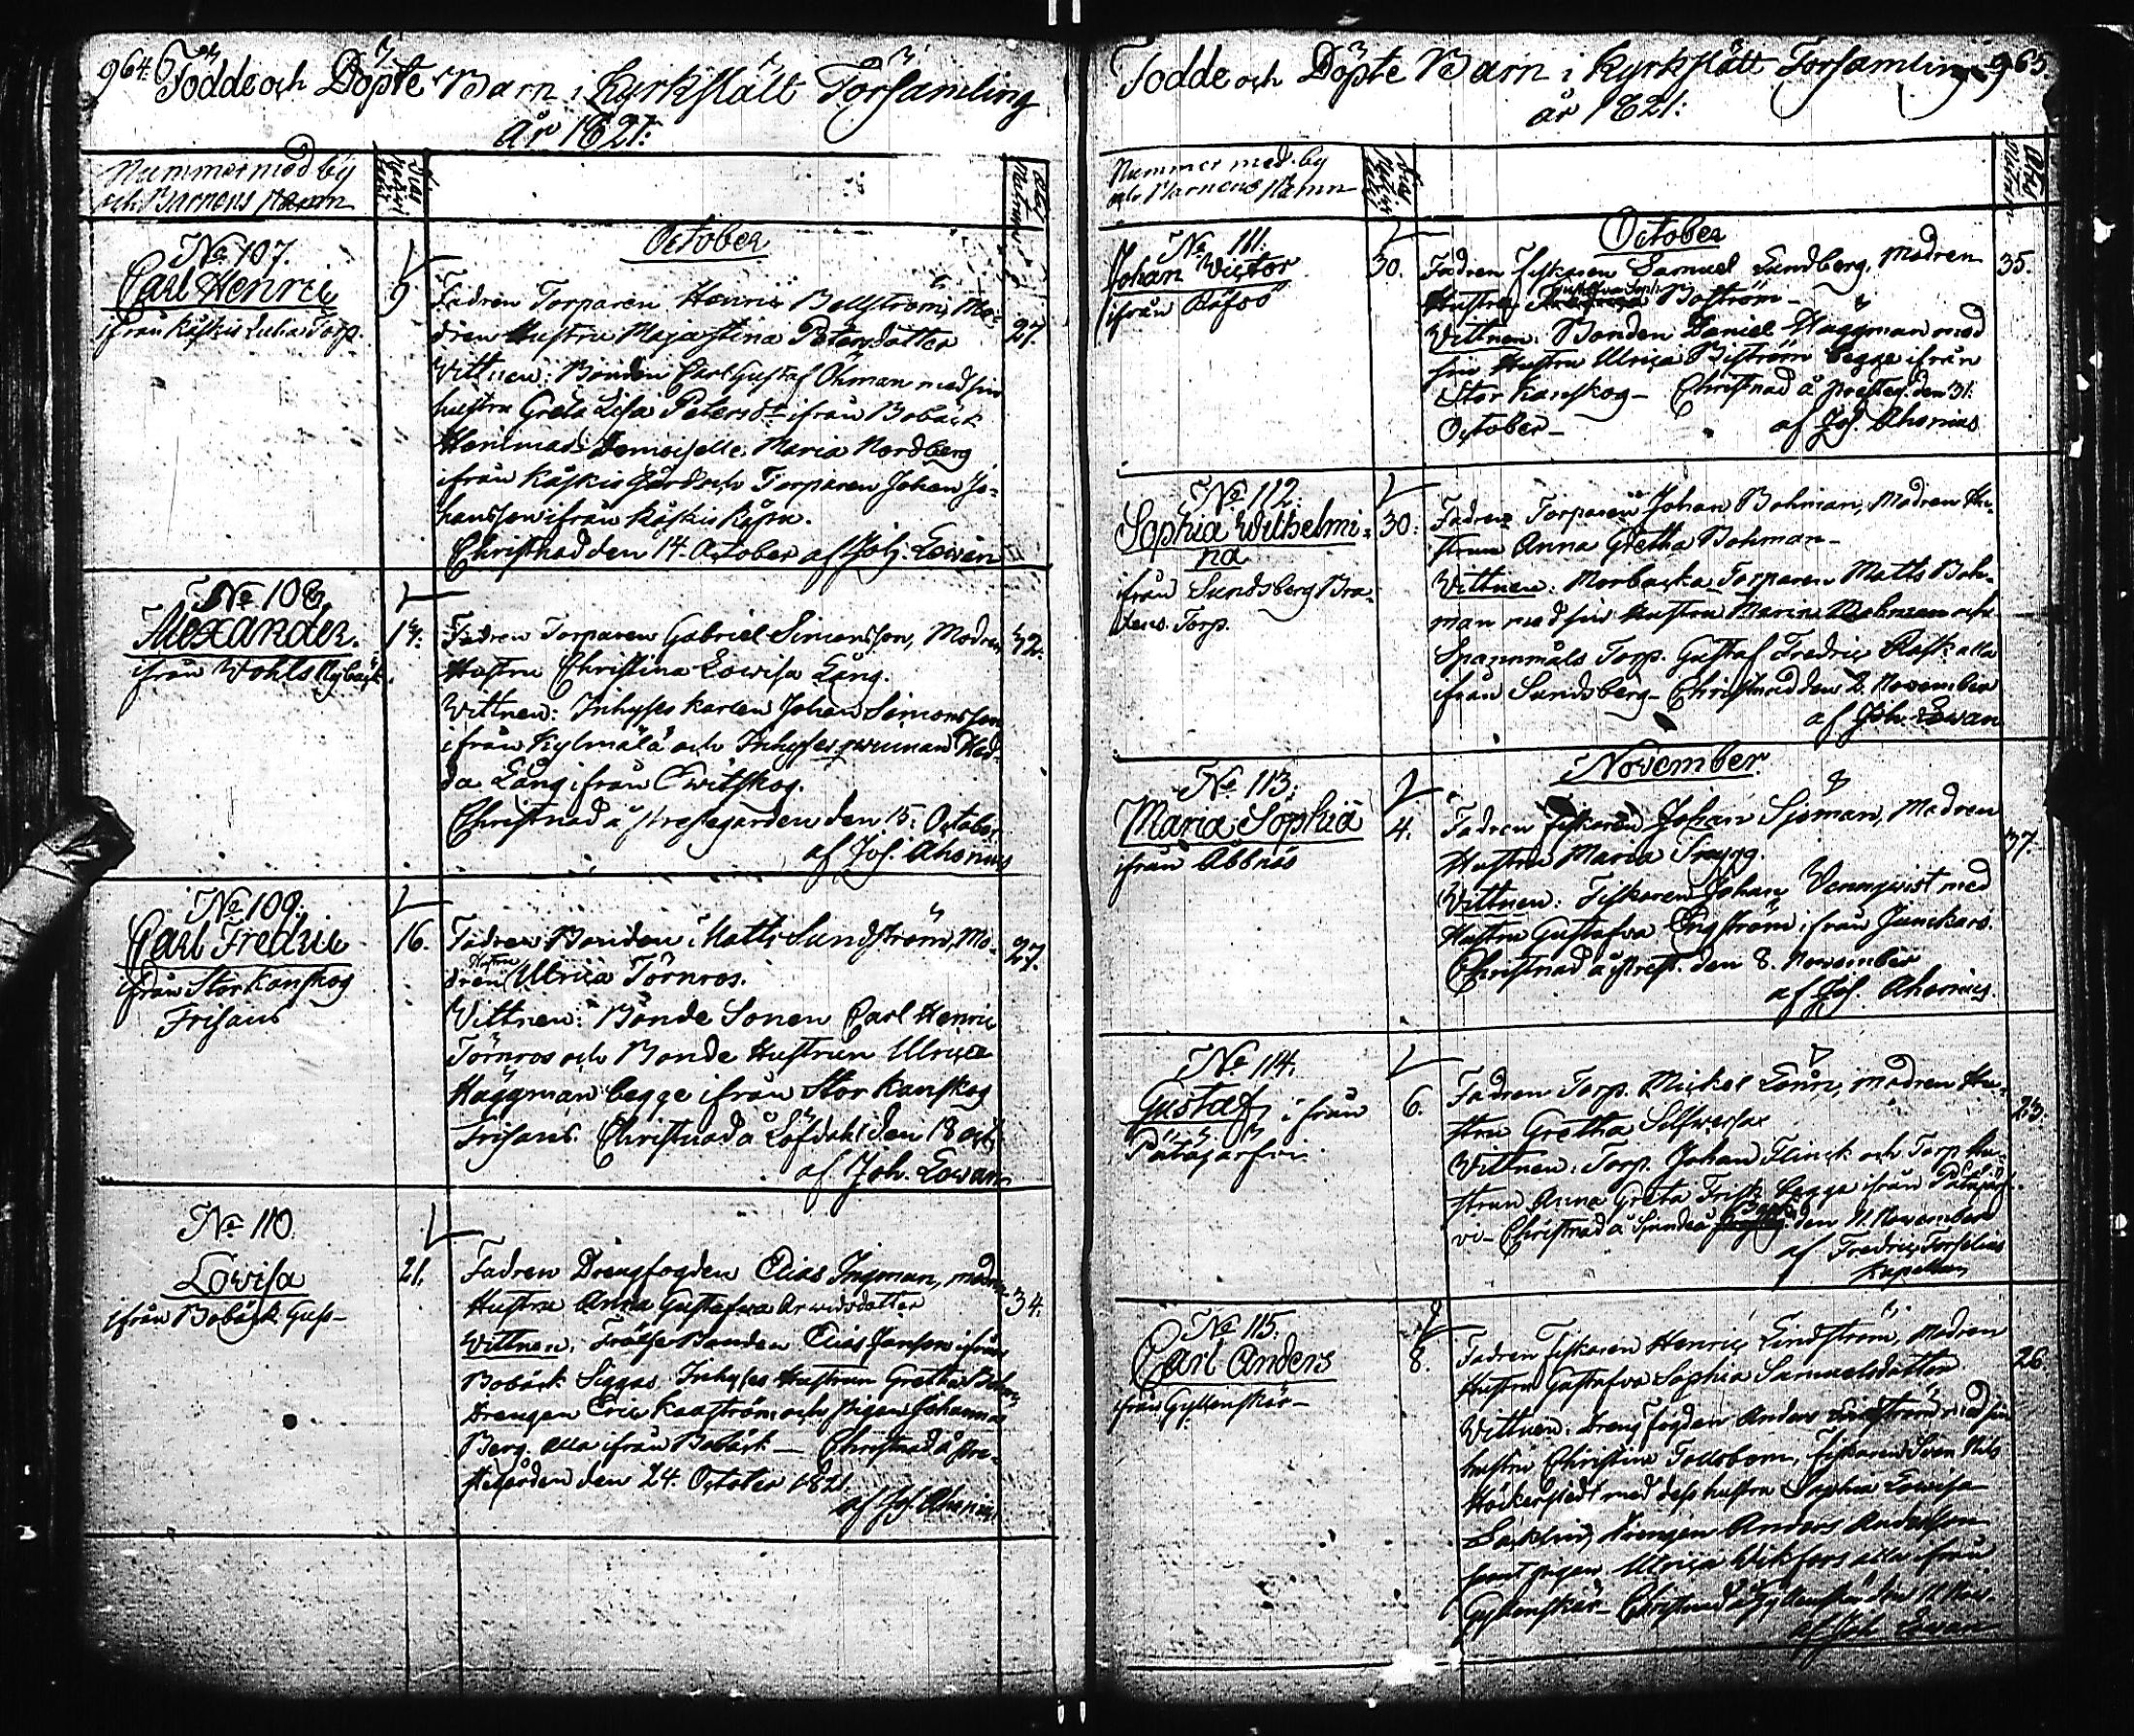 964. Födde och Döpte Barn i Kyrkslätt Församling
år 1821.
Nummer med by
och Barnens Namn
October
No 107.
Carl Henric
ifrån Käskis Torp
9
27.
Fadren Torparen Henric Bellström, Mo-
dren Hustru Maja Stina Petersdotter
Vittnen: Bonden Carl Gustaf Öhman med sin
hustru Greta Lisa Petersdr ifrån Bobäck
Demoiselle Maria Nordberg
ifrån Käskis Gård och Torparen Johan Jo-
hansson ifrån Käskis
Christnad den 14. October af Joh: Lowan
No 108.
Alexander.
ifrån Wohls Nybäck.
14.
42.
Fadren Torparen Gabriel Simonsson, Modren
Hustru Christina Lowisa Lång.
Vittnen: Inhyses karlen Johan Simonsson
ifrån Kylmälä och Inhyses qvinnan Hed-
da Lång ifrån Ewitskog.
Christnad å Prestegården den 15. October
af Jos. Ahonius
No 109.
Carl Fredric
ifrån Stor Kanskog
Frisans
16.
27.
Fadren Bonden Matts Sundström, Mo-
dren Hustru Ulrica Törnros.
Vittnen: Bonde Sonen Carl Henric
Törnros och Bonde Hustrun Ulrica
Häggman begge ifrån Stor Kanskog
Frisans. Christnad å Löfdahl den 18 Oct.
af Joh. Lowan
No 110.
Lowisa
ifrån Bobäck Guss-
21.
34.
Fadren Drengfogden Elias Ingman, modren
Hustru Anna Gustafva Arvidsdotter
Vittnen. Frälse Bonden Elias Janson ifrån
Bobäck Siggas Inhyses Hustrun Gretha
Drengen Eric Kaaström och Pigan Johanna
Berg. alla ifrån Bobäck - Christnad å Pre-
stegården den 24. October 1821
af Jos. Ahonius
Födde och Döpte Barn i Kyrkslätt Församling 965.
år 1821:
Nummer med by
och Barnens Namn
October
No 111.
Johan Victor
ifrån Räfsö
30.
35.
Fadren Fiskaren Samuel Sundberg, Modren
Hustru Gustafva Soph. Boström-
Vittnen: Bonden Daniel Häggman med
sin Hustru Ulrica Biström begge ifrån
Stor Kanskog - Christnad å presteg. den 31.
October - af Jos. Ahonius
No 112.
Sophia Wilhelmi-
na
ifrån Sundsberg Bra-
tens Torp.
30.
Fadren Torparen Johan Bohman, Modren Hu-
strun Anna Gretha Bohman-
Vittnen. Morbacka Torparen Matts Boh-
man med sin Hustru Maria Bohman och
Spannmåls Torp. Gustaf Fredric Rask alla
ifrån Sundsberg - Christnad den 2. November
af Joh. Lowan
November
No 113.
Maria Sophia
ifrån Abbnäs
4.
37.
Fadren Fiskaren Johan Sjöman, Modren
Hustru Maria Trygg.
Vittnen: Fiskaren Johan Vennqvist med
Hustru Gustafva Engström ifrån Junckars.
Christnad å Prest. den 8. November
af Jos. Ahonius.
No 114.
Gustaf, ifrån
Pätäjärfvi.
6.
23.
Fadren Torp. Mickel Lönn, modren Hu-
stru Gretha
Vittnen: Torp. Johan Flinck och Torp Hu-
strun Anna Greta Frisk begge ifrån Pätäjärf-
vi - Christnad å Sjundeå den 11. November
af Fredric Forselius
Kapellan
No 115.
Carl Anders
ifrån Gyllenskär-
8.
26.
Fadren Fiskaren Henric Lindström, Modren
Hustru Gustafva Sophia Samuelsdotter
Vittnen. Dreng fogden Anders Lindström med sin
hustru Christina Tallbom, Fiskaren Sven Nils
Höckerstedt med dess hustru Sophia Lowisa
Drengen Anders Andersson
samt pigan Ulrica Wikfors alla ifrån
Gyllenskär - Christnad å Gyllenskär den 11. Nov.
af Joh. Lowan